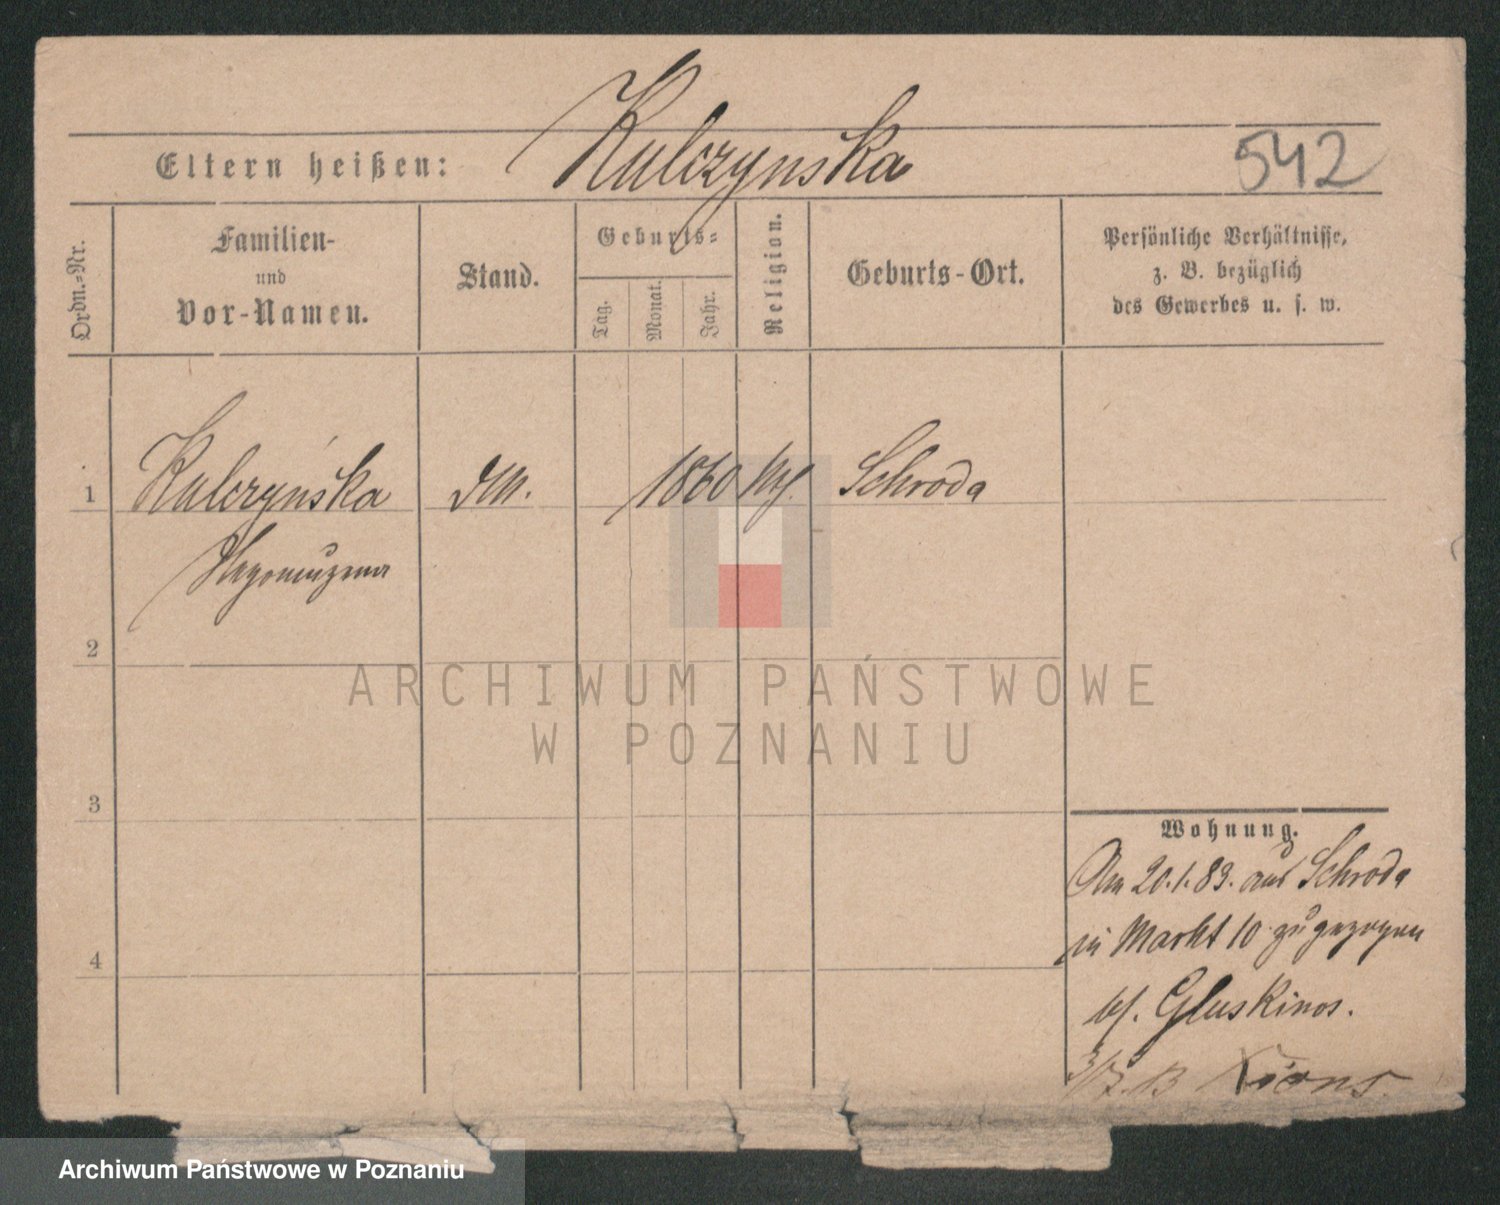 Kulczynska
542
Eltern heißen:
Ordn.-Nr.
Familien-
und
Vor-Namen.
Stand.
Geburts-
Tag.
Monat.
Jahr.
Religion.
Geburts-Ort.
Persönliche Verhältnisse,
z. B. bezüglich
des Gewerbes u. s. w.
1
Kulczyńska
1860
Schroda
2
3
4
ARCHIWUM PAŃSTWOWE
W POZNANIU
Wohnung.
Am 20.1.83. aus Schroda
in Markt 10 zugezogen
Gluskinos.
Archiwum Państwowe w Poznaniu